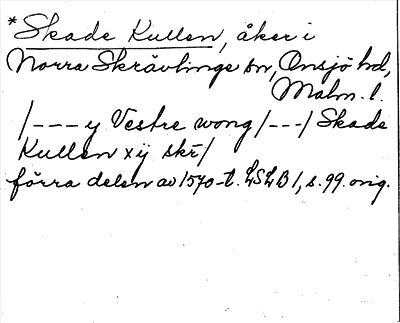 *Skade Kullen, åker i
Norra Skrävlinge sn, Onsjö hd,
Malm. l.
/--- y Vestre wong /---/ Skade
Kullen xij skr/
förra delen av 1570-t. LSLB 1, s. 99. orig.